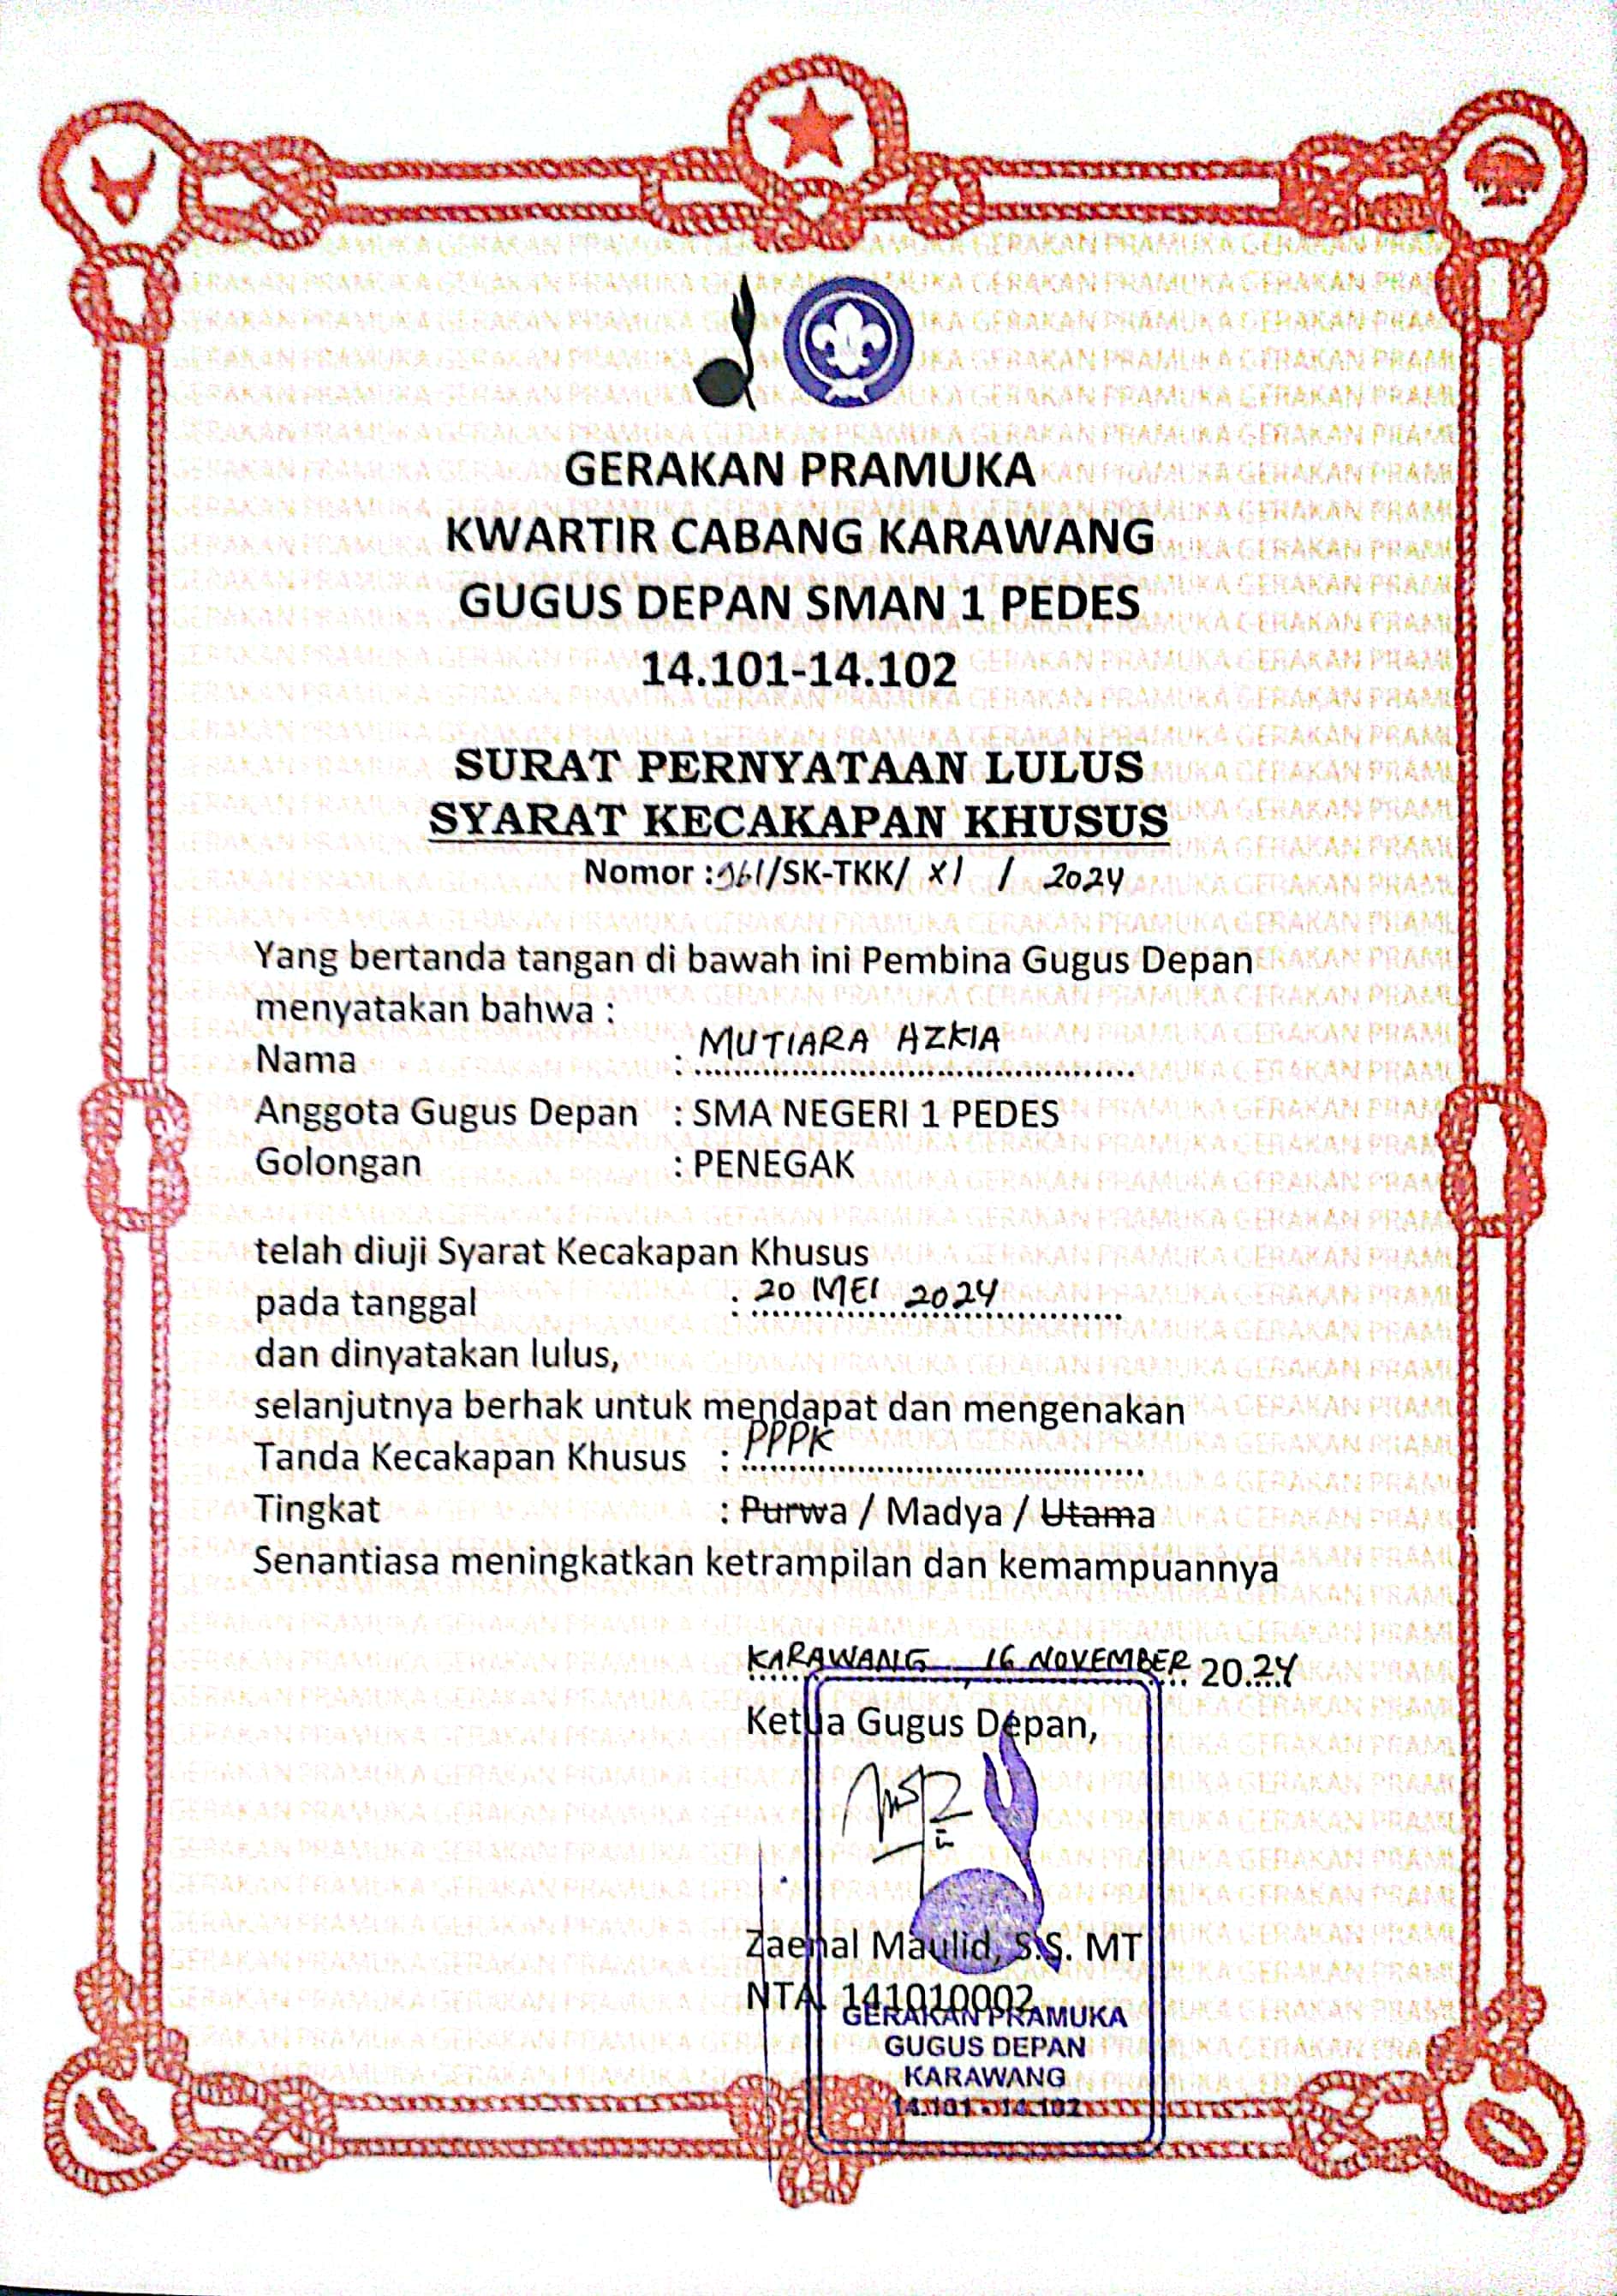 GERAKAN PRAMUKA
KWARTIR CABANG KARAWANG
GUGUS DEPAN SMAN 1 PEDES
14.101-14.102
SURAT PERNYATAAN LULUS
SYARAT KECAKAPAN KHUSUS
Nomor : 361/SK-TKK/ XI / 2024
Yang bertanda tangan di bawah ini Pembina Gugus Depan
menyatakan bahwa :
Nama : MUTIARA AZKIA
Anggota Gugus Depan : SMA NEGERI 1 PEDES
Golongan : PENEGAK
telah diuji Syarat Kecakapan Khusus
pada tanggal : 20 MEI 2024
dan dinyatakan lulus,
selanjutnya berhak untuk mendapat dan mengenakan
Tanda Kecakapan Khusus : PPPK
Tingkat : Purwa / Madya / Utama
Senantiasa meningkatkan ketrampilan dan kemampuannya
KARAWANG, 16 NOVEMBER 2024
Ketua Gugus Depan,
Zaenal Maulid, S.S. MT
NTA. 141010002
GERAKAN PRAMUKA
GUGUS DEPAN
KARAWANG
14.101 - 14.102